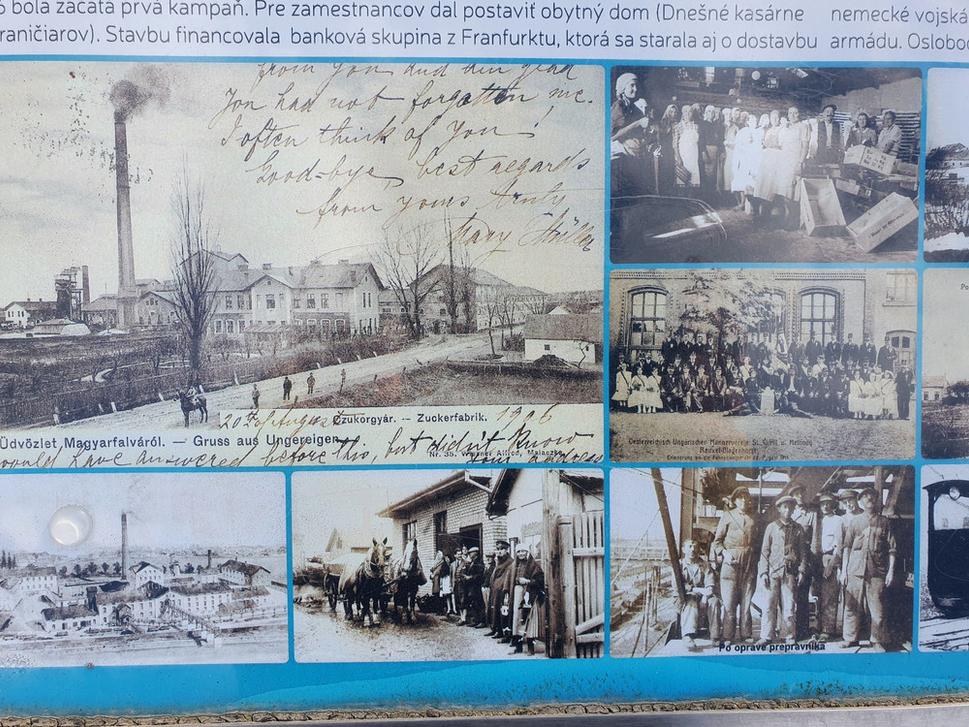 bola začatá prvá kampaň. Pre zamestnancov dal postaviť obytný dom (Dnešné kasárne
raničiarov). Stavbu financovala banková skupina z Franfurktu, ktorá sa starala aj o dostavbu
nemecké vojská
armádu. Oslobo
from you and am glad
You had not forgotten me.
I often think of you!
Good-bye, best regards
from yours truly
Mary Müller
20 1906
Czukorgyár. — Zuckerfabrik.
Üdvözlet Magyarfalváról. — Gruss aus Ungereigen.
would have answered before this, but didn't know
your address
Nr. 35. Wiesner Alfred, Malaczka
Oesterreichisch Ungarischer Männerverein St.
Po oprave prepravníka